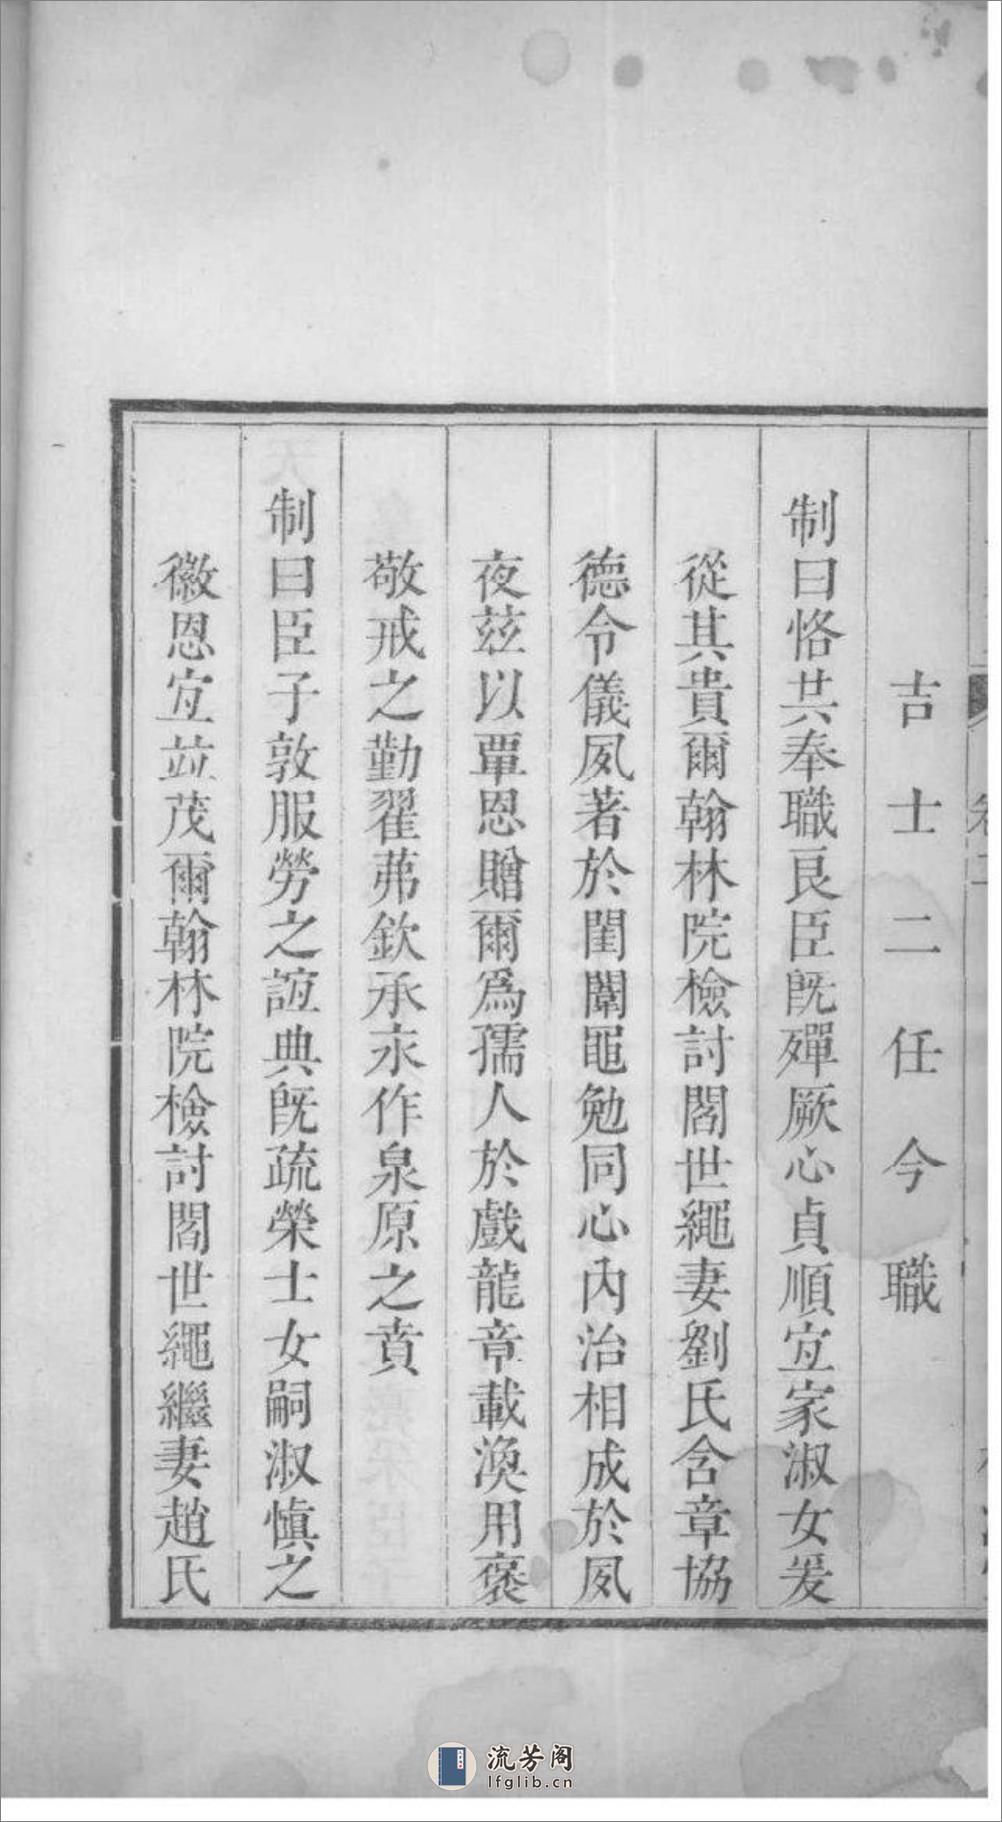 吉士二任今職
制曰恪共奉職良臣旣殫厥心貞順宜家淑女爰
從其貴爾翰林院檢討閻世繩妻劉氏含章協
德令儀夙著於閨闈黽勉同心內治相成於夙
夜玆以覃恩贈爾爲孺人於戲龍章載渙用褒
敬戒之勤翟茀欽承永作泉原之賁
制曰臣子敦服勞之誼典旣疏榮士女嗣淑愼之
徽恩宜並茂爾翰林院檢討閻世繩繼妻趙氏
流芳阁
lfglib.cn